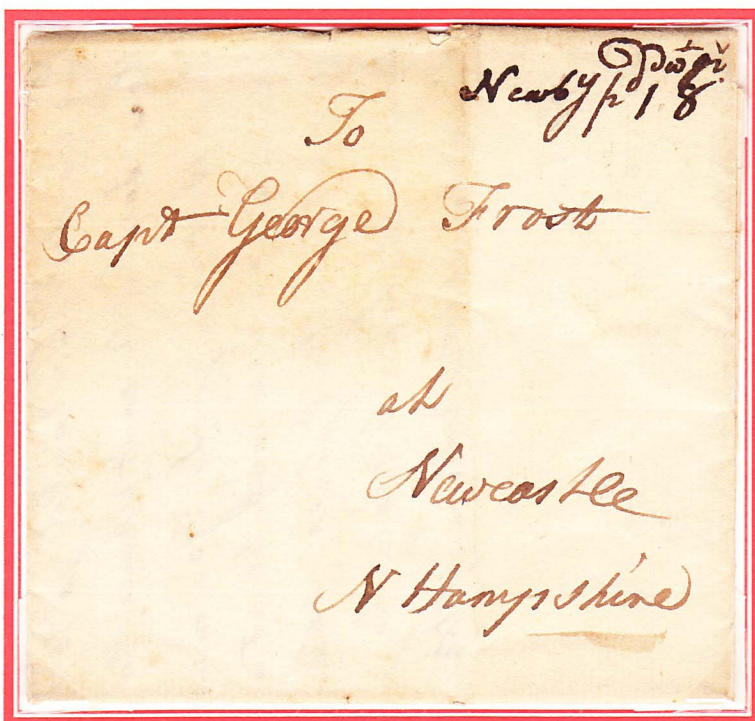 Newby
To
Capt George Frost
at
Newcastle
N Hampshire